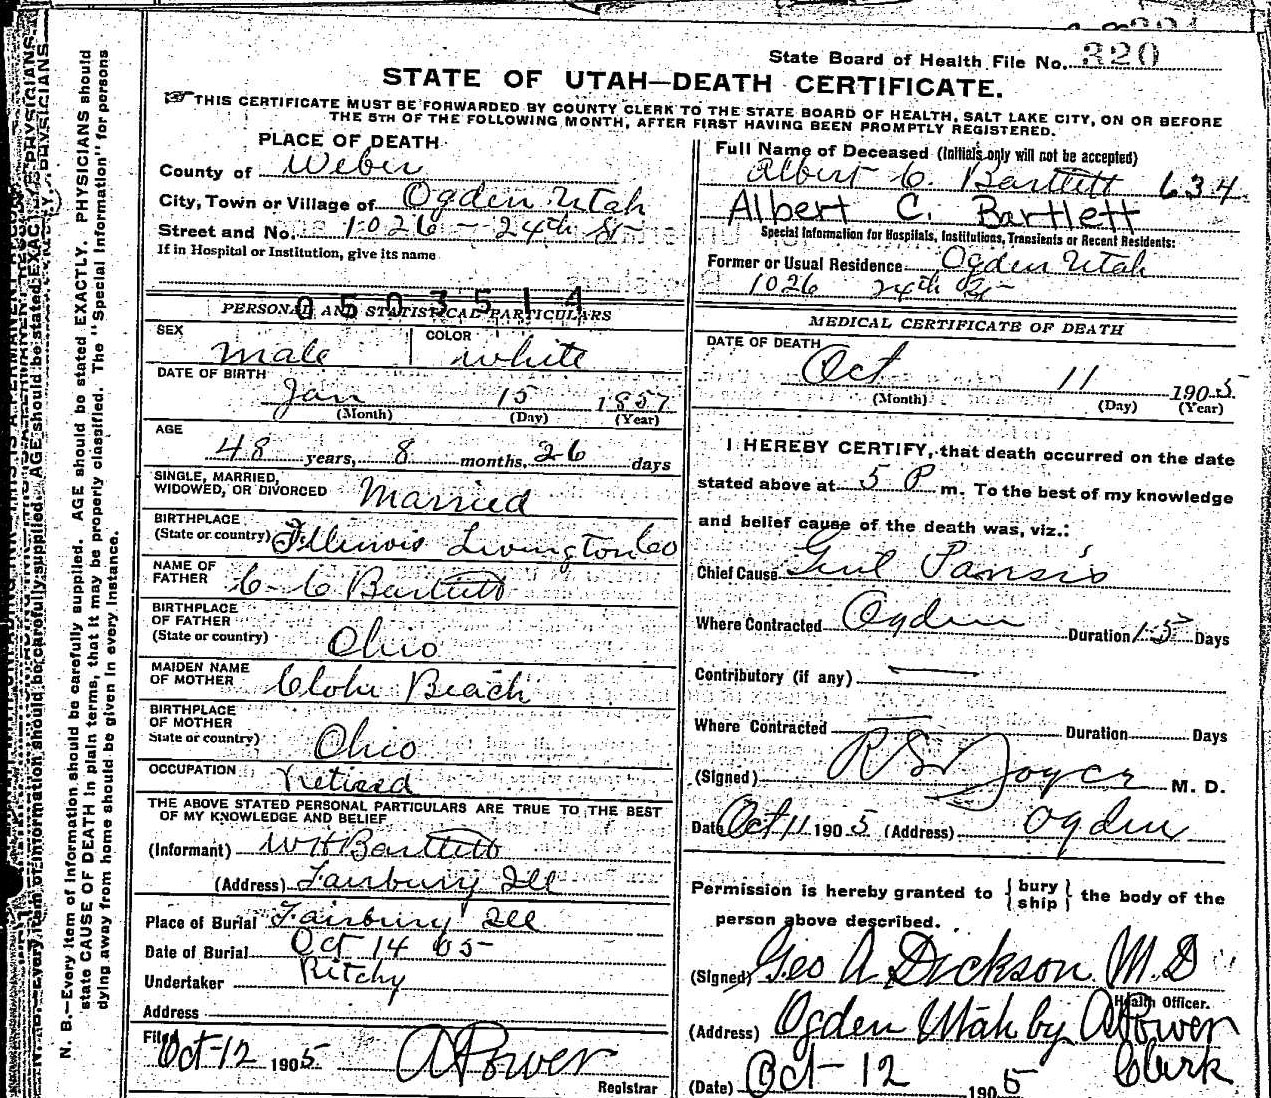 State Board of Health File No. 320
STATE OF UTAH—DEATH CERTIFICATE.
☞THIS CERTIFICATE MUST BE FORWARDED BY COUNTY CLERK TO THE STATE BOARD OF HEALTH, SALT LAKE CITY, ON OR BEFORE
THE 5TH OF THE FOLLOWING MONTH, AFTER FIRST HAVING BEEN PROMPTLY REGISTERED.
PLACE OF DEATH
County of Weber
City, Town or Village of Ogden Utah
Street and No. 1026 - 24th St
If in Hospital or Institution, give its name
0503514
PERSONAL AND STATISTICAL PARTICULARS
SEX male COLOR white
DATE OF BIRTH Jan 15 1857
(Month) (Day) (Year)
AGE
48 years, 8 months, 26 days
SINGLE, MARRIED,
WIDOWED, OR DIVORCED Married
BIRTHPLACE
(State or country) Illinois Livington Co
NAME OF
FATHER C C Bartlett
BIRTHPLACE
OF FATHER
(State or country) Ohio
MAIDEN NAME
OF MOTHER Beach
BIRTHPLACE
OF MOTHER
State or country) Ohio
OCCUPATION Retired
THE ABOVE STATED PERSONAL PARTICULARS ARE TRUE TO THE BEST
OF MY KNOWLEDGE AND BELIEF
(Informant) WH Bartlett
(Address) Fairbury Ill
Place of Burial Fairbury Ill
Date of Burial Oct 14 05
Undertaker Ritchy
Address
Filed Oct-12 1905 A Power
Registrar
Full Name of Deceased (Initials only will not be accepted)
Albert C. Bartlett 634
Albert C. Bartlett
Special Information for Hospitals, Institutions, Transients or Recent Residents:
Former or Usual Residence Ogden Utah
1026 24th St
MEDICAL CERTIFICATE OF DEATH
DATE OF DEATH
Oct 11 1905
(Month) (Day) (Year)
I HEREBY CERTIFY, that death occurred on the date
stated above at 5 P m. To the best of my knowledge
and belief cause of the death was, viz.:
Chief Cause
Where Contracted Ogden Duration 15 Days
Contributory (if any) —
Where Contracted — Duration Days
(Signed) R S Joyce M. D.
Date Oct 11 1905 (Address) Ogden
Permission is hereby granted to {bury ship} the body of the
person above described.
(Signed) Geo A Dickson M.D
Health Officer.
(Address) Ogden Utah by A Power
Clerk
(Date) Oct-12 1905
N. B.—Every item of information should be carefully supplied. AGE should be stated EXACTLY. PHYSICIANS should
state CAUSE OF DEATH in plain terms, that it may be properly classified. The "Special Information" for persons
dying away from home should be given in every instance.